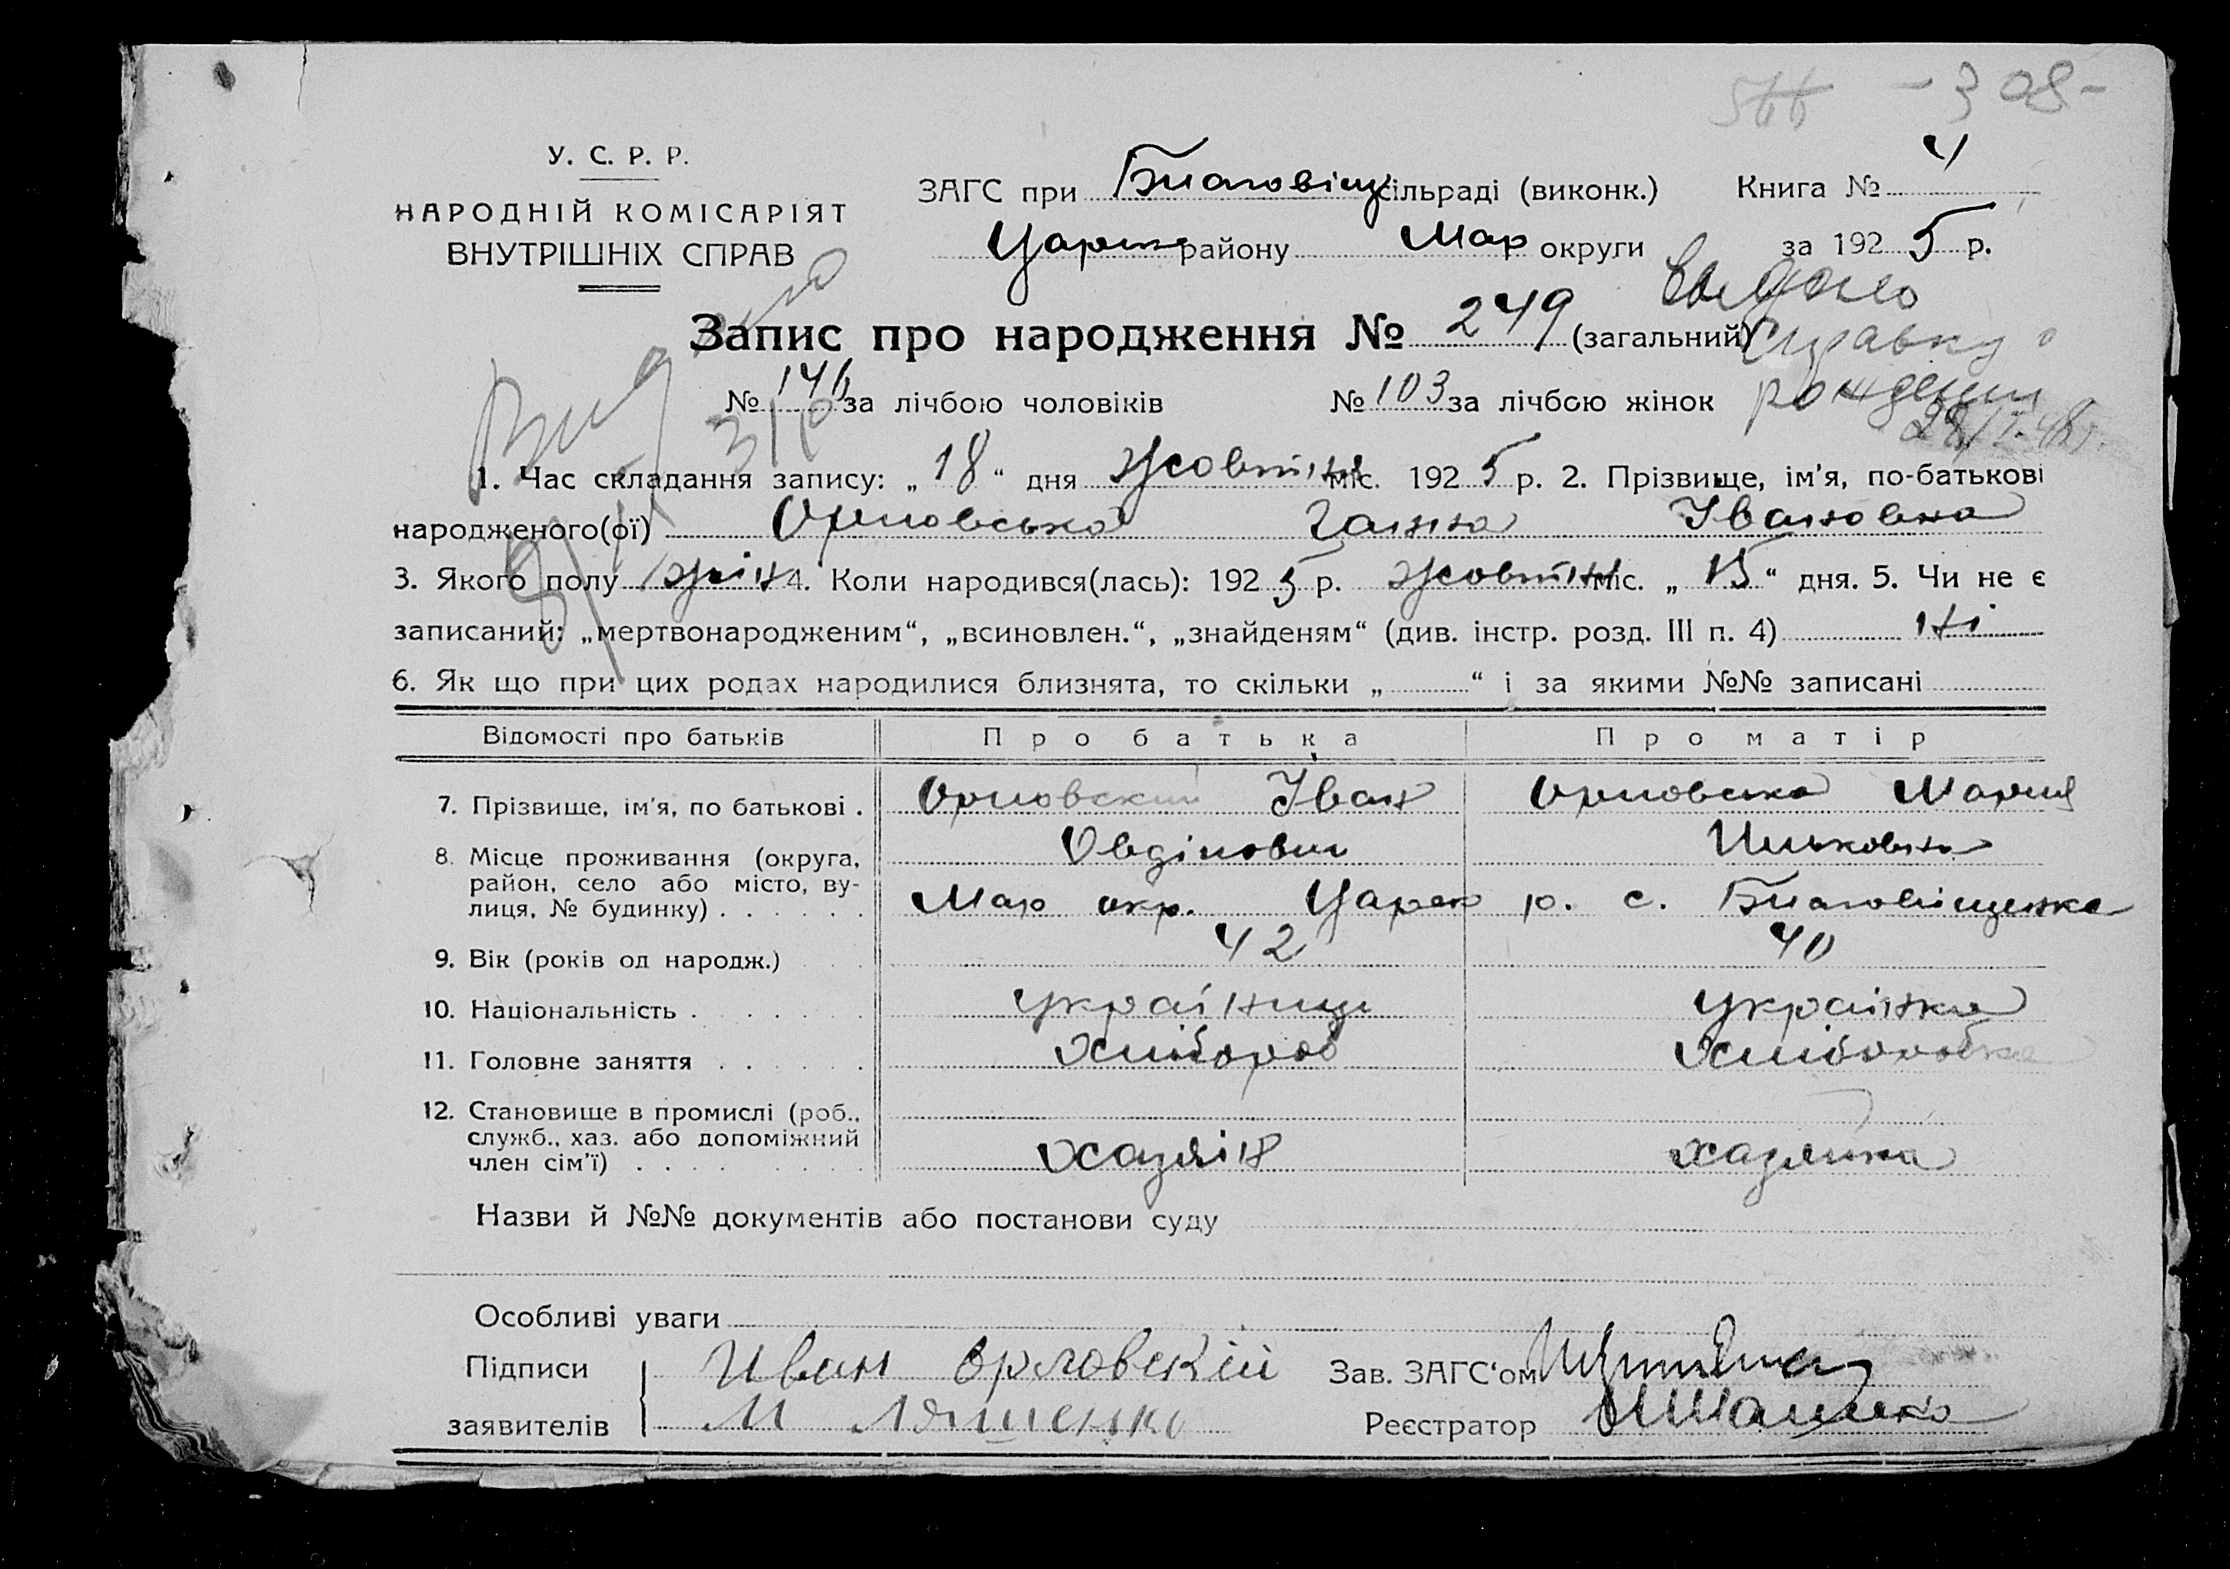 566 - 308 -
У. С. Р. Р.
НАРОДНІЙ КОМІСАРІЯТ
ВНУТРІШНІХ СПРАВ
ЗАГС при Благовіщ сільраді (виконк.) Книга № 4
Царек району Мар округи за 1925 р.
Выдано
справку о
рождении
Запис про народження № 249 (загальний)
№ 146 за лічбою чоловіків № 103 за лічбою жінок
1. Час складання запису: „18“ дня жовтня міс. 1925 р. 2. Прізвище, ім’я, по-батькові
народженого(ої) Орловська Ганна Івановна
3. Якого полу жін 4. Коли народився(лась): 1925 р. жовтня міс. „15“ дня. 5. Чи не є
записаний: „мертвонародженим“, „всиновлен.“, „знайденям“ (див. інстр. розд. III п. 4) Ні
6. Як що при цих родах народилися близнята, то скільки „ “ і за якими №№ записані
Відомості про батьків Про батька Про матір
7. Прізвище, ім’я, по батькові . Орловский Іван Орловська Мария
Овдіпович
8. Місце проживання (округа, район, село або місто, вулиця, № будинку) . . . . . . Мар окр. Царек р. с. Благовіщенка
9. Вік (років од народж.) 42 40
10. Національність . . . . . . . українець українка
11. Головне заняття . . . . . . Хлібороб Хліборобка
12. Становище в промислі (роб., служб., хаз. або допоміжний член сім’ї) . . . . . . . . . Хазяін хазяйка
Назви й №№ документів або постанови суду
Особливі уваги
Підписи Иван Орловскій Зав. ЗАГС‘ом
заявителів М Ляшенко Реєстратор